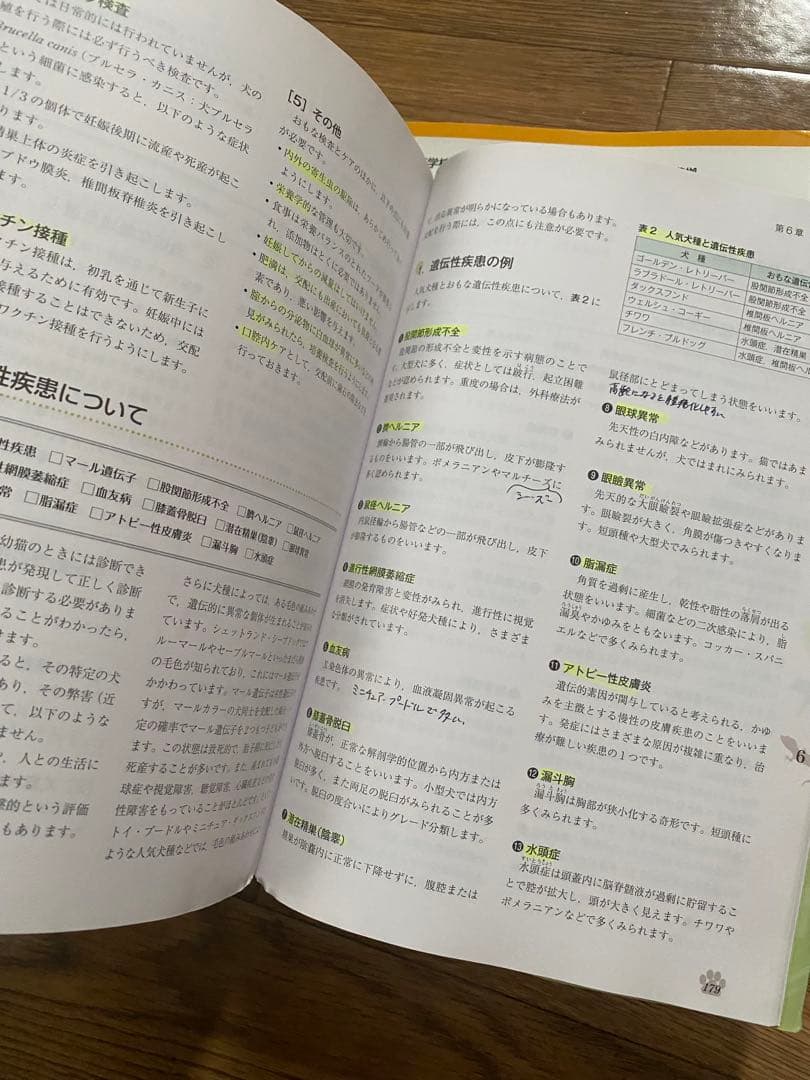 検査
は日常的には行われていませんが，犬の
殖を行う際には必ず行うべき検査です。
Brucella canis（ブルセラ・カニス：犬ブルセラ
という細菌に感染すると，以下のような症状
します。
1/3の個体で妊娠後期に流産や死産が起こ
ります。
精巣上体の炎症を引き起こします。
ブドウ膜炎，椎間板脊椎炎を引き起こし
チン接種
クチン接種は，初乳を通じて新生子に
与えるために有効です。妊娠中には
接種することはできないため，交配
ワクチン接種を行うようにします。
[5] その他
おもな検査とケアのほかに，以下の
が必要です。
・内外の寄生虫の駆除は，あらかじめ
ようにします。
・栄養学的な管理も大切です。
・食事は栄養バランスのとれた
れ，添加物はとくに必要ではありません。
・妊娠してからの減量は
・肥満は，交配にも出産に
素であり，悪い影響を与えます。
・膣からの分泌物に白血球が異常に
見がみられたら，培養検査を行うように
・口腔内ケアとして，交配前に歯石
行っておきます。
性疾患について
性疾患 □マール遺伝子 □股関節形成不全 □臍ヘルニア □鼠径ヘルニア
性網膜萎縮症 □血友病 □膝蓋骨脱臼 □潜在精巣（陰睾） □眼球異常
常 □脂漏症 □アトピー性皮膚炎 □漏斗胸 □水頭症
幼猫のときには診断でき
患が発現して正しく診断
診断する必要がありま
ることがわかったら，
けます。
ると，その特定の犬
あり，その弊害（近
て，以下のような
ません。
，人との生活に
ます。
的という評価
もあります。
さらに犬種によっては，ある毛色の
で，遺伝的に異常な個体が生まれることが
ています。シェットランド・シープドッグでは
ルーマールやセーブルマールといった
の毛色が知られており，これにはマール遺伝子
かかわっています。マール遺伝子は
すが，マールカラーの犬同士を交配した
定の確率でマール遺伝子を2つもつ子が
す。この状態は致死的で，胎子期に死亡
死産することが多いです。また，
球症や視覚障害，聴覚障害，心臓疾患
性障害をもっていることがほとんどです。
トイ・プードルやミニチュア・ダックスフンド
ような人気犬種などでは，毛色の
第6章
，ある異常が明らかになっている場合もあります。
交配を行う際には，この点にも注意が必要です。
表2 人気犬種と遺伝性疾患
犬 種 おもな遺伝
ゴールデン・レトリーバー 股関節形成不全
ラブラドール・レトリーバー 股関節形成不全
ダックスフンド 椎間板ヘルニア
ウェルシュ・コーギー 椎間板ヘルニア
チワワ 水頭症，潜在精巣
フレンチ・ブルドッグ 水頭症，椎間板ヘル
遺伝性疾患の例
人気犬種とおもな遺伝性疾患について，表2に
示します。
❶股関節形成不全
股関節の形成不全と変性を示す病態のことで
す。大型犬に多く，症状としては跛行，起立困難
などが認められます。重度の場合は，外科療法が
選択されます。
❷臍ヘルニア
臍輪から腸管の一部が飛び出し，皮下が膨隆す
るものをいいます。ポメラニアンやマルチーズに
多く認められます。
シーズー
❸鼠径ヘルニア
内鼠径輪から腸管などの一部が飛び出し，皮下
が膨隆するものをいいます。
❹進行性網膜萎縮症
網膜の発育障害と変性がみられ，進行性に視覚
を消失します。症状や好発犬種により，さまざま
な分類がされています。
❺血友病
染色体の異常により，血液凝固異常が起こる
疾患です。 ミニチュアプードルで多い
❻膝蓋骨脱臼
膝蓋骨が，正常な解剖学的位置から内方または
外方へ脱臼することをいいます。小型犬では内方
脱臼が多く，また両足の脱臼がみられることが多
いです。脱臼の度合いによりグレード分類します。
❼潜在精巣（陰睾）
精巣が陰嚢内に正常に下降せずに，腹腔または
鼠径部にとどまってしまう状態をいいます。
高齢になると腫瘍化しやすい
❽眼球異常
先天性の白内障などがあります。猫ではあま
みられませんが，犬ではまれにみられます。
❾眼瞼異常
先天的な大眼瞼裂や眼瞼拡張症などがありま
す。眼瞼裂が大きく，角膜が傷つきやすくなりま
す。短頭種や大型犬でみられます。
❿脂漏症
角質を過剰に産生し，乾性や脂性の落屑が出る
状態をいいます。細菌などの二次感染により，脂
漏臭やかゆみをともないます。コッカー・スパニ
エルなどで多くみられます。
⓫アトピー性皮膚炎
遺伝的素因が関与していると考えられる，かゆ
みを主徴とする慢性の皮膚疾患のことをいいま
す。発症にはさまざまな原因が複雑に重なり，治
療が難しい疾患の1つです。
⓬漏斗胸
漏斗胸は胸部が狭小化する奇形です。短頭種に
多くみられます。
⓭水頭症
水頭症は頭蓋内に脳脊髄液が過剰に貯留するこ
とで腔が拡大し，頭が大きく見えます。チワワや
ポメラニアンなどで多くみられます。
6
179